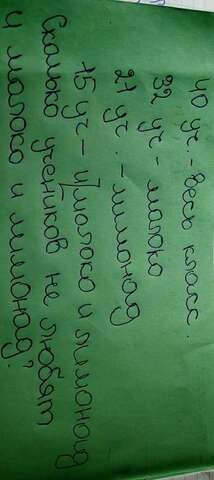 40 уч. - весь класс.
32 уч - молоко
21 уч. - лимонад
15 уч - и молоко и лимонад
Сколько учеников не любят
и молоко и лимонад?